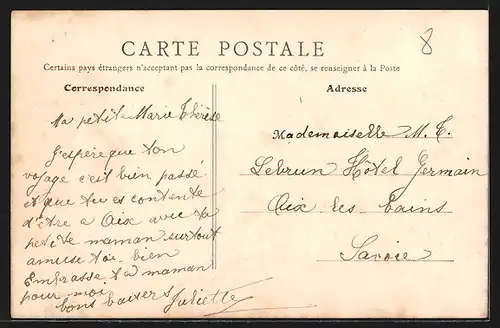 8
CARTE POSTALE
Certains pays étrangers n'acceptant pas la correspondance de ce côté, se renseigner à la Poste
Correspondance
Ma petite Marie Thérèse
J'espère que ton
voyage c'est bien passé
et que tu es contente
d'être a Aix avec ta
petite maman surtout
amuse toi bien
Embrasse ta maman
pour moi
bons baisers Juliette
Adresse
Mademoiselle M. T.
Lebrun Hôtel Germain
Aix les bains
Savoie